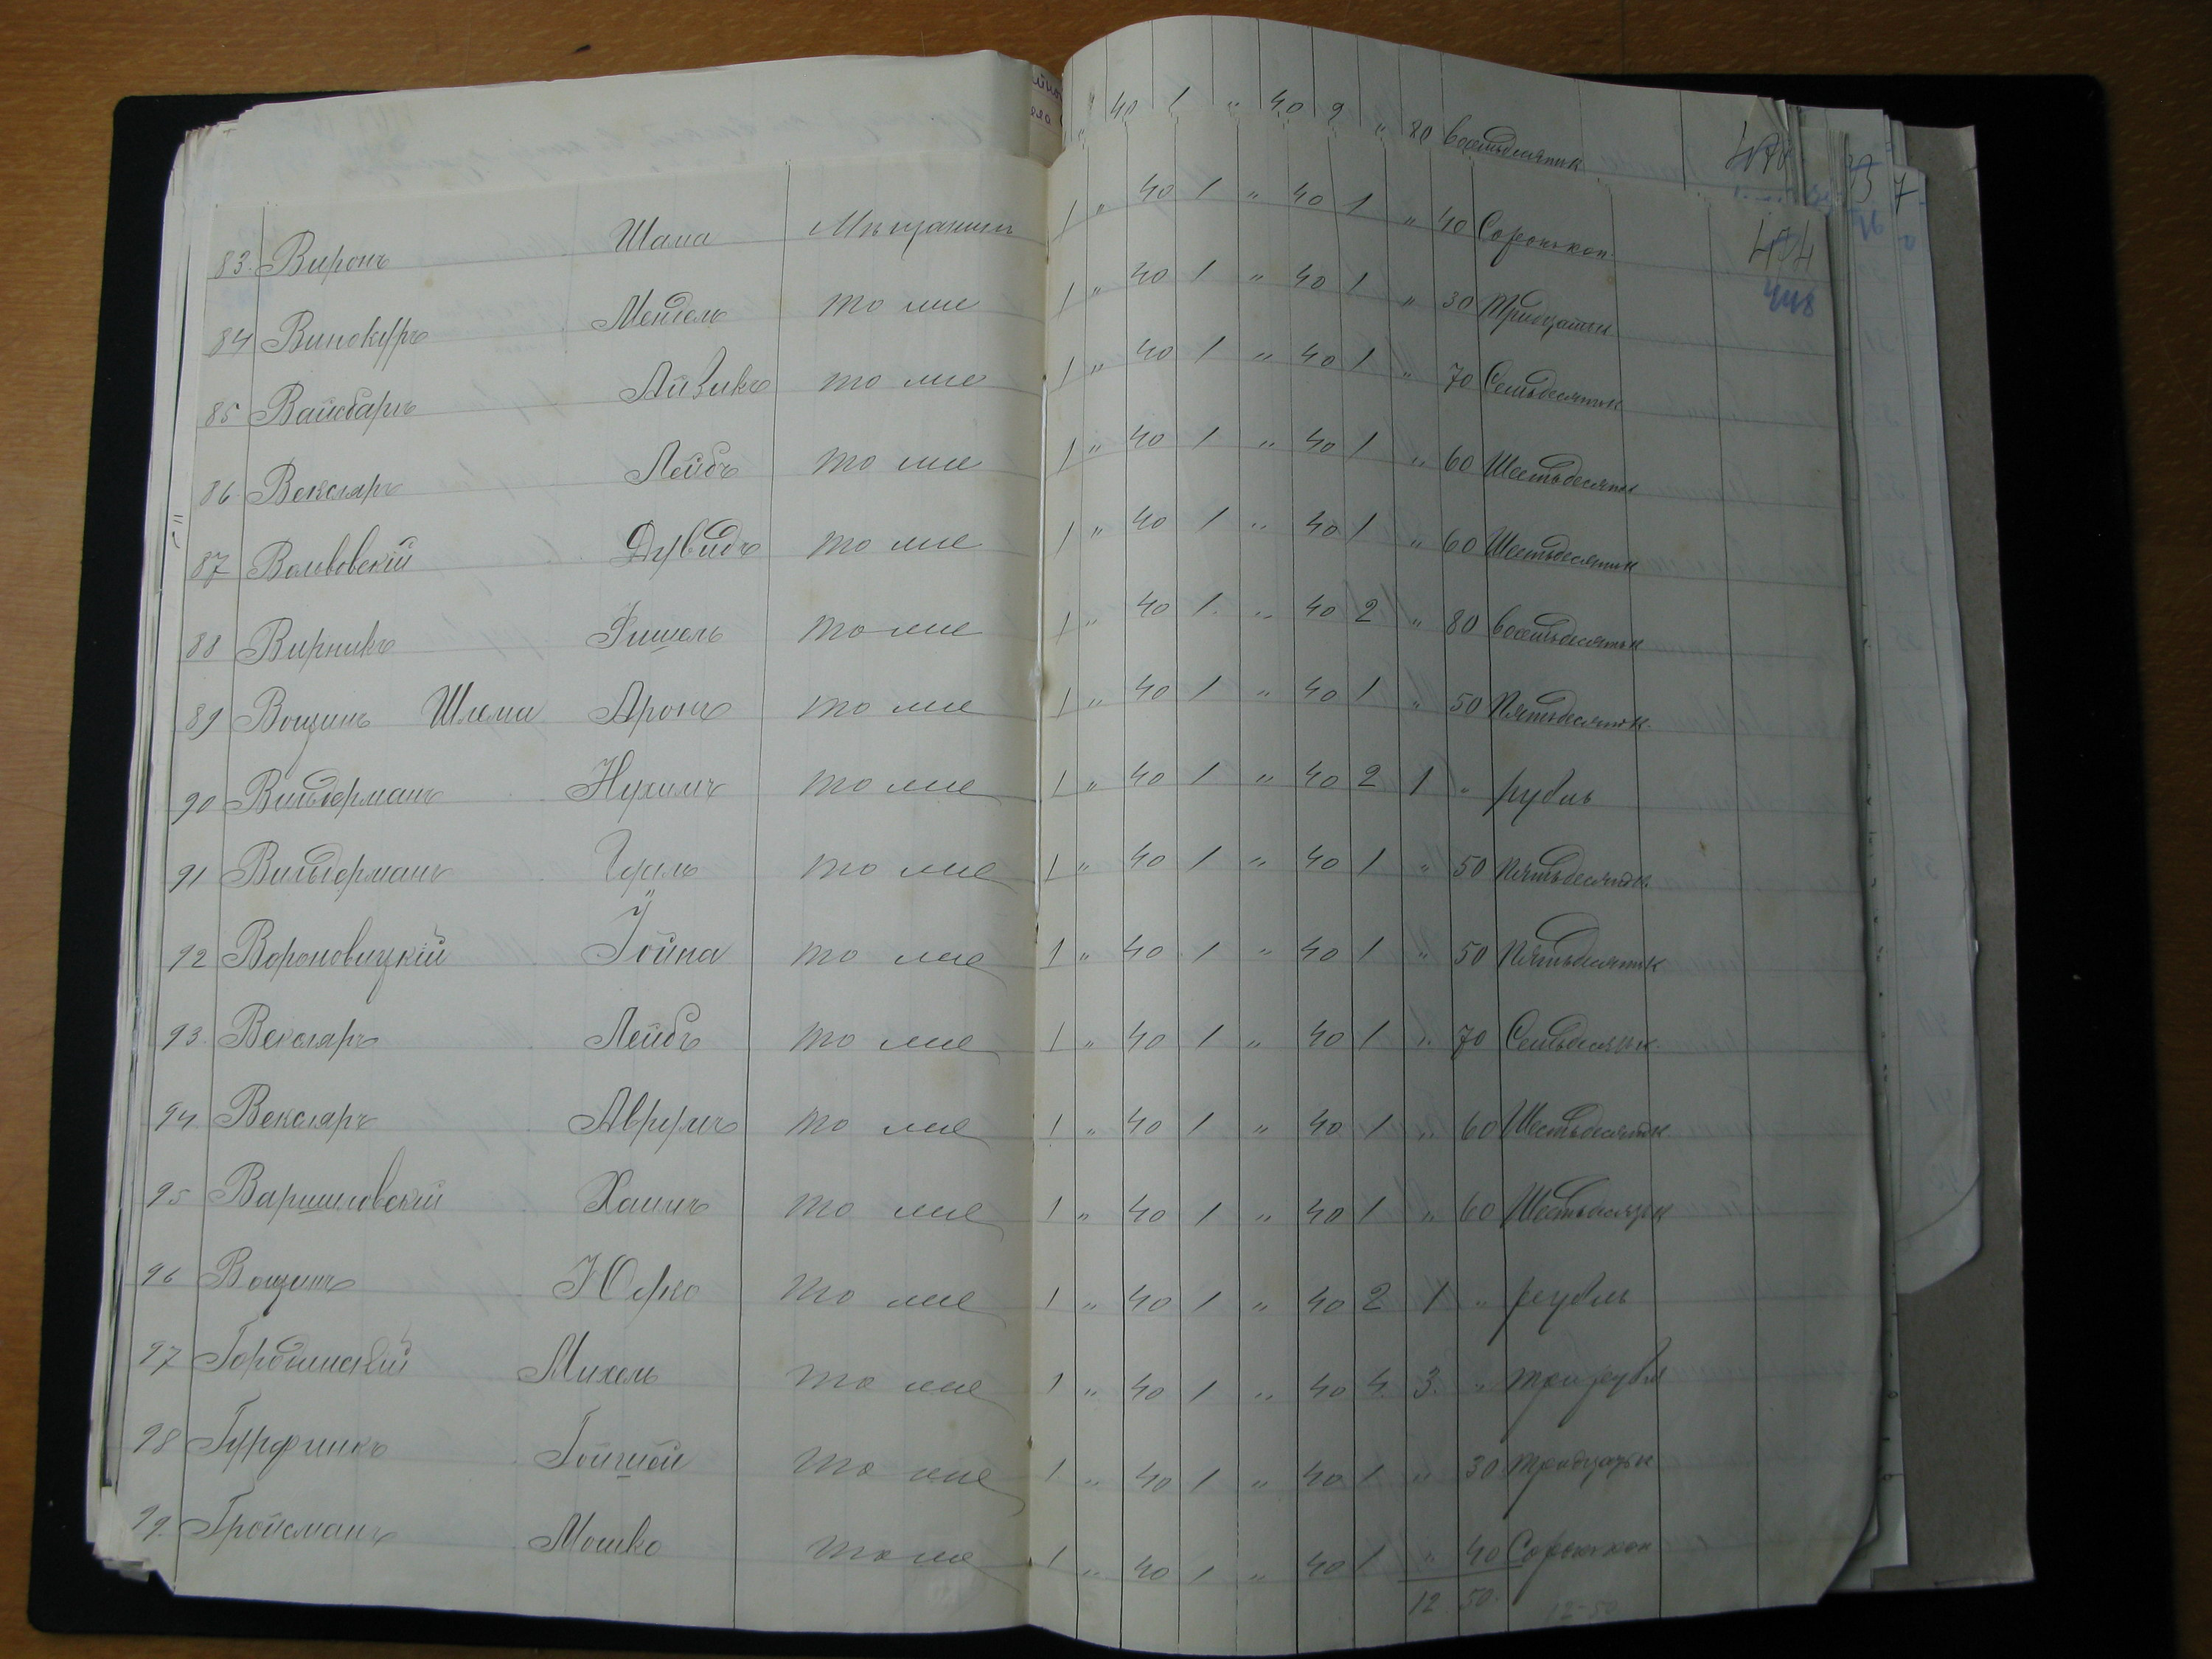 " 40 1 " 40 2 " 80 восемьдесятк
83. Виронъ Шама Мѣщанинъ 1 " 40 1 " 40 1 " 40 Сорокъ коп.
84 Винокуръ Мендель то же 1 " 40 1 " 40 1 " 30 Тридцатьк
85 Вайсбаръ Айзикъ то же 1 " 40 1 " 40 1 " 70 Семьдесятк
86 Векслеръ Лейбъ то же 1 " 40 1 " 40 1 " 60 Шестьдесятк
87 Волвовскій Дувидъ то же 1 " 40 1 " 40 1 " 60 Шестьдесятк
88 Вирникъ Фишель то же 1 " 40 1 " 40 2 " 80 восемьдесятк
89 Вощинъ Шлема Аронъ то же 1 " 40 1 " 40 1 " 50 Пятьдесятк.
90 Вильдерманъ Нухимъ то же 1 " 40 1 " 40 2 1 " рубль
91 Вильдерманъ то же 1 " 40 1 " 40 1 " 50 Пятьдесятк
92 Вороновицкій Іойна то же 1 " 40 1 " 40 1 " 50 Пятьдесятк
93. Векслеръ Лейбъ то же 1 " 40 1 " 40 1 " 70 Семьдесятк.
94 Векслеръ Аврумъ то же 1 " 40 1 " 40 1 " 60 Шестьдесятк
95 Варшиловскій Хаимъ то же 1 " 40 1 " 40 1 " 60 Шестьдесятк
96 Вощинъ Юрко то же 1 " 40 1 " 40 2 1 " рубль
97 Гордынскій Михель то же 1 " 40 1 " 40 4. 3. " три рубл
98 Гурфинкъ то же 1 " 40 1 " 40 1 " 30 тридцатьк
99. Гройсманъ Мошко то же 1 " 40 1 " 40 1 " 40 Сорокъ коп
12. 50.
12-50
454
448